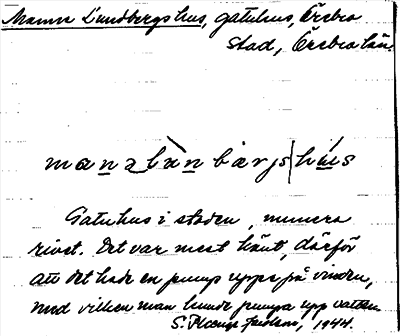 Manne Lundbergs hus, gatuhus, Örebro
stad, Örebro län.
Gatuhus i staden, numera
rivet. Det var mest känt, därför
att det hade en pump uppe på vinden,
med vilken man kunde pumpa upp vatten
S. 1944.